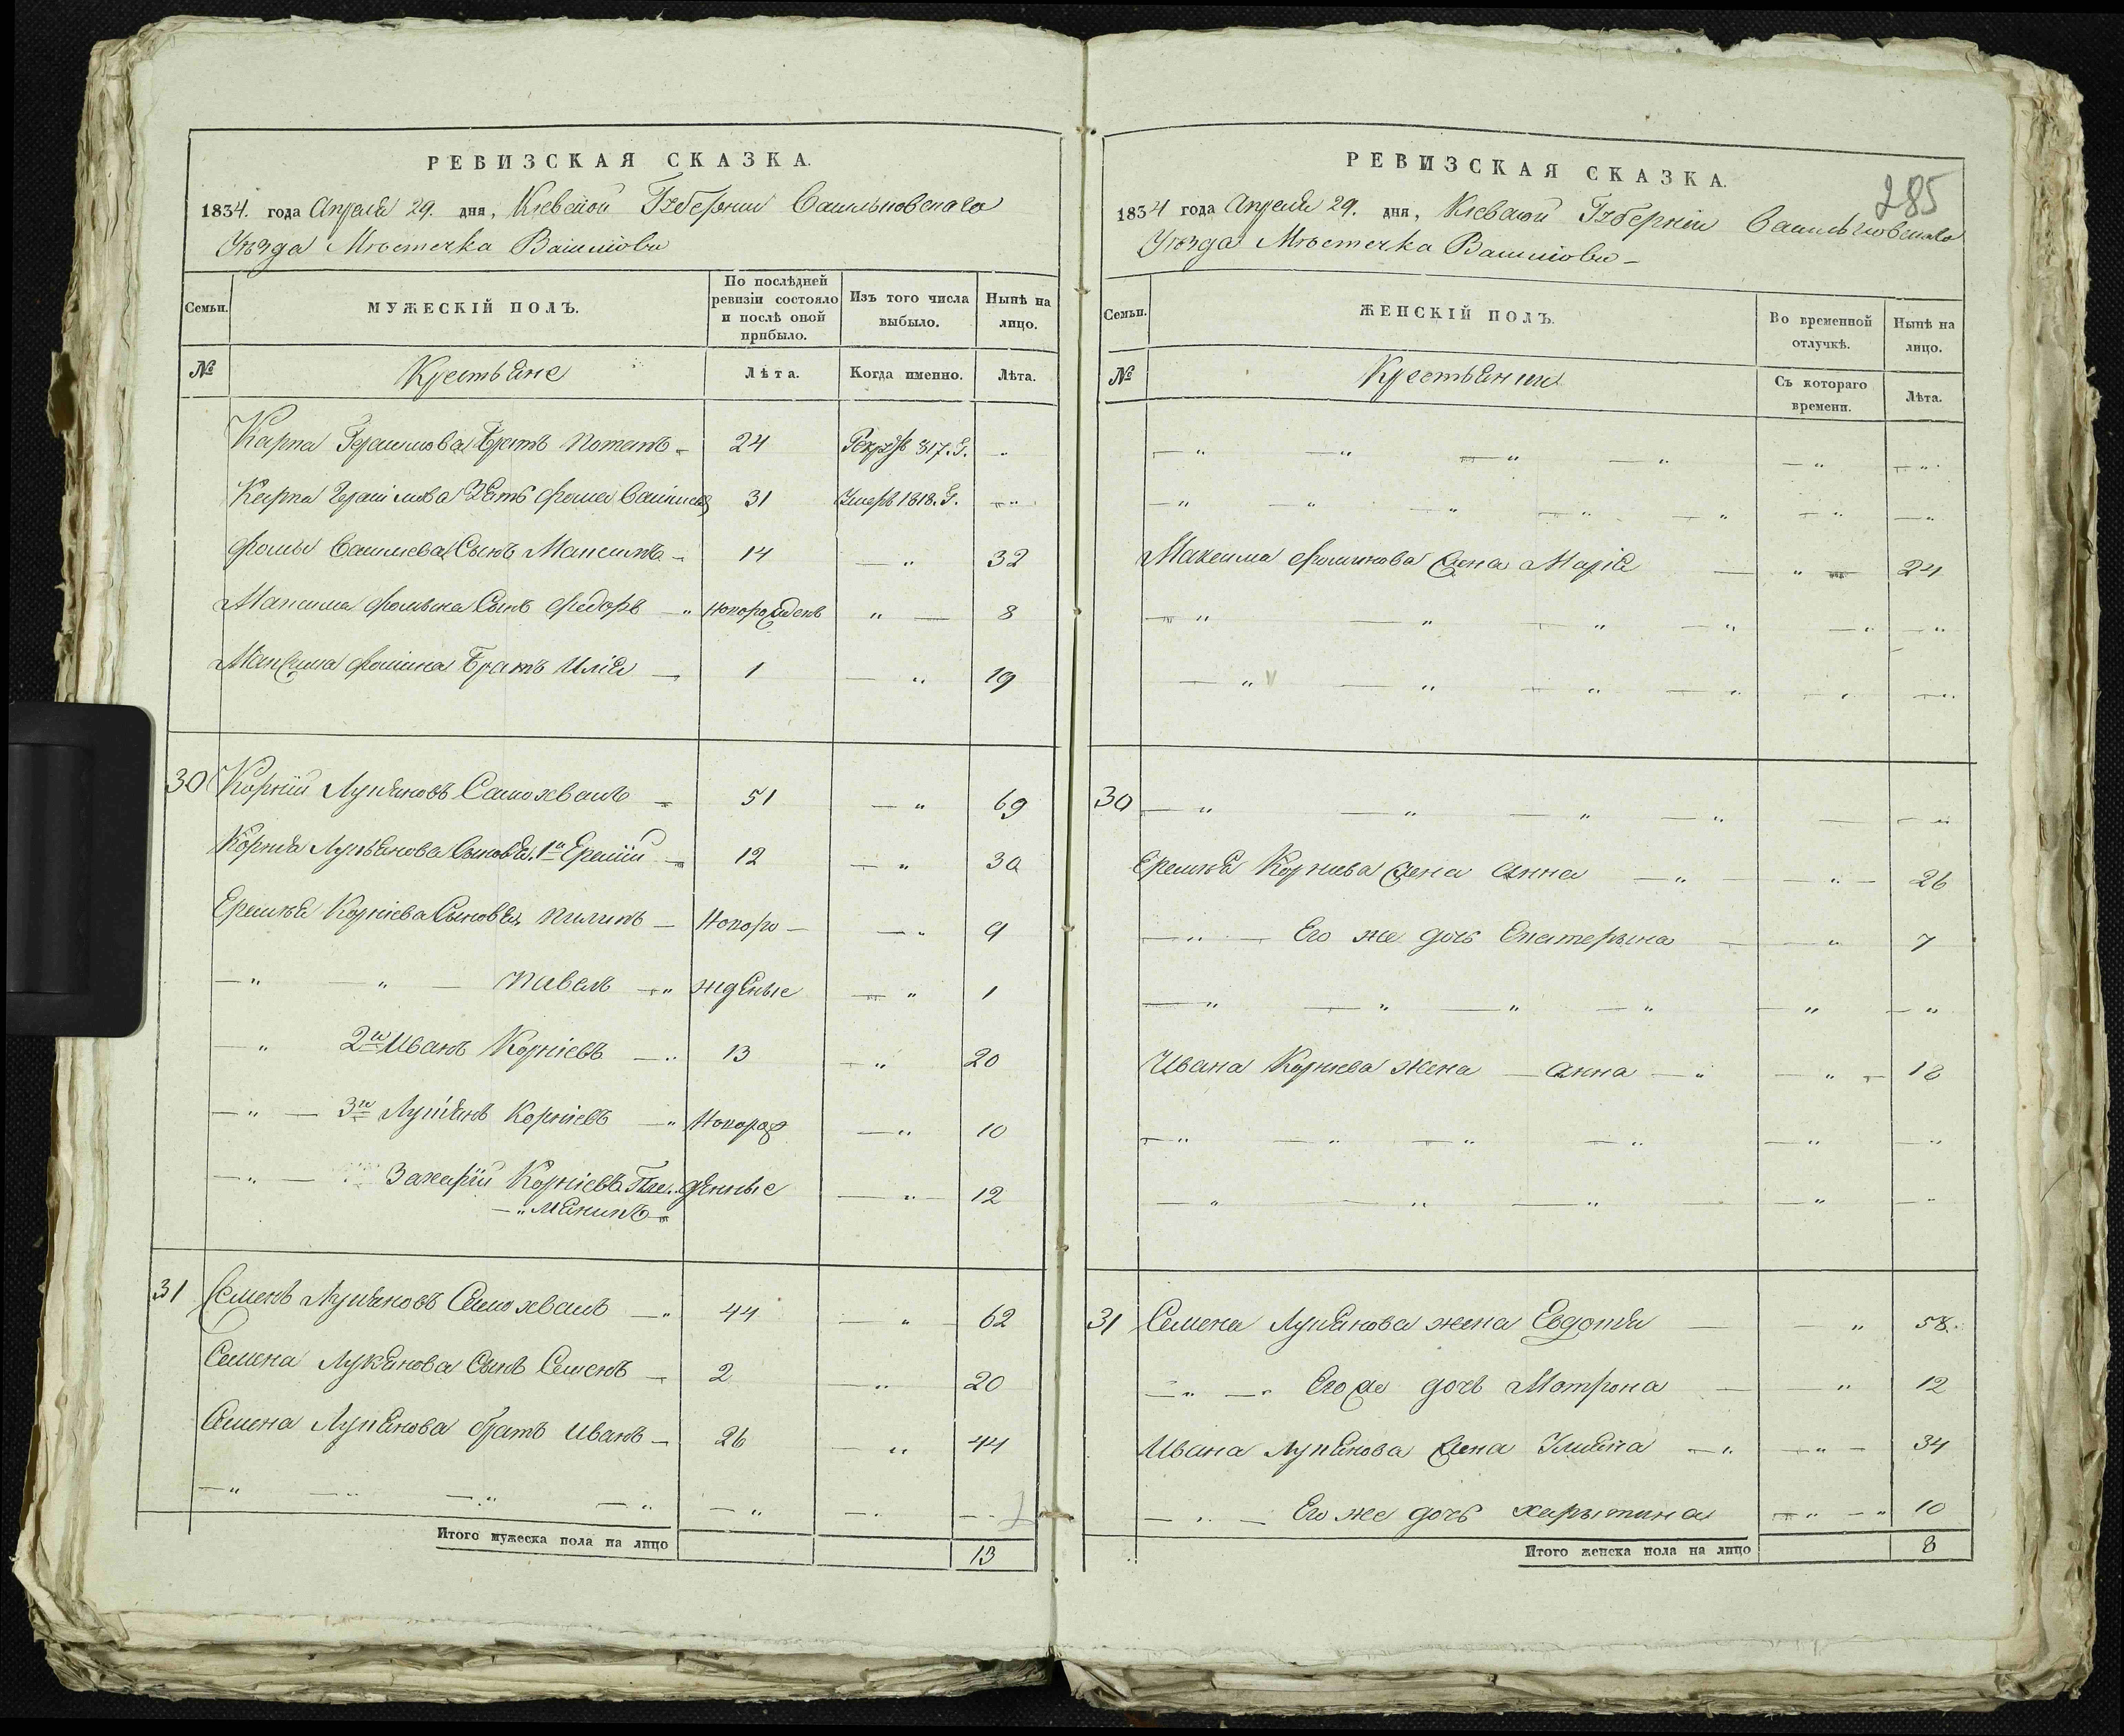 РЕВИЗСКАЯ СКАЗКА.
1834. года Апреля 29. дня, Кіевской Губернии Васильковскаго
Уѣзда Мѣстечка
Семьи. МУЖЕСКІЙ ПОЛЪ. По послѣдней ревизіи состояло и послѣ оной прибыло. Изъ того числа выбыло. Нынѣ на лицо.
№ Крестьяне Лѣта. Когда именно. Лѣта.
Карпа Герасимова Братъ Потапъ 24 817. Г.
Карпа Герасимова Зять Фома 31 Умеръ 1818. Г.
Фомы Сынъ Максимъ 14 — " 32
Максима Фомина Сынъ Федоръ — " Новорожденъ " — 8
Максима Фомина Братъ Илія — 1 — " 19
30 Корній Лукяновъ Самохвалъ — 51 — " 69
Корнія Лукьянова Сыновья. 1й Еремій — 12 — " 30
Еремія Корніева Сыновья, Пилипъ — Новоро — — " 9
— " — " — Павелъ — " жденые — " 1
— " 2й Иванъ Корніевъ — " 13 — " 20
— " — 3й Лукянъ Корніевъ — " Новорож — " 10
— " — Захарій Корніевъ Пле.. денные — " — 12
— " мянникъ —
31 Семенъ Лукяновъ Самохвалъ — " 44 — " — 62
Семена Лукянова Сынъ Семенъ — 2 — " 20
Семена Лукянова братъ Иванъ — 26 — " 44
— " — " — " — " — " — " — "
Итого мужеска пола на лицо 13
РЕВИЗСКАЯ СКАЗКА.
285
1834 года Апреля 29. дня, Кіевской Губерніи Васильковскаго
Уѣзда Мѣстечка
Семьи. ЖЕНСКІЙ ПОЛЪ. Во временной отлучкѣ. Нынѣ на лицо.
№ Крестьянки Съ котораго времени. Лѣта.
— " — " — " — " — " — "
— " — " — " — " — " — " — "
Максима Жена Марія — " — 24
— " — " — " — " — " — "
— " — " — " — " — " — "
30 — " — " — " — " — — "
Еремія Корнева Жена Анна — " — — " — 26
— " — Его же дочь Екатерына — — " 7
— " — " — " — " — " — "
Ивана Корнева жена — Анна — " — " — 18
— " — " — " — " — " — "
— " — " — " — — " — "
31 Семена Лукянова жена Евдокія — — " 58.
— " — " Его же дочь Мотрона — — " 12
Ивана Лукянова Жена Ульяна — " — " — 34
— " — Его же дочь Харытина — " — " 10
Итого женска пола на лицо 8